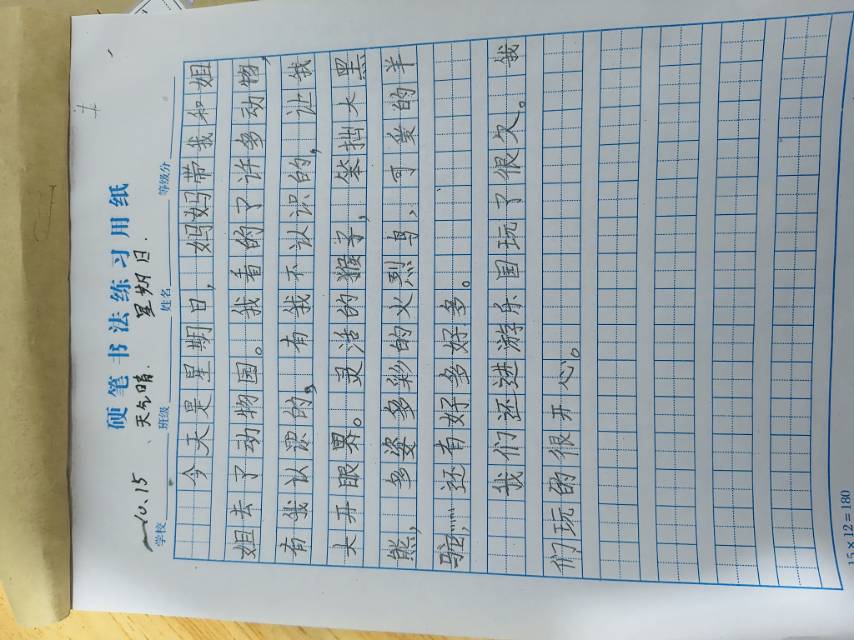 硬笔书法练习用纸
10.15、天气晴. 星期日.
学校 班级 姓名 等级分
今天是星期日，妈妈带我和姐
姐去了动物园。我看的了许多动物，
有我认识的，有我不认识的，让我
大开眼界。灵活的猴子，笨拙大黑
熊，多姿多彩的火烈鸟、可爱的羊
驼……还有好多好多。
我们还进游乐国玩了很久。我
们玩的很开心。
15×12=180